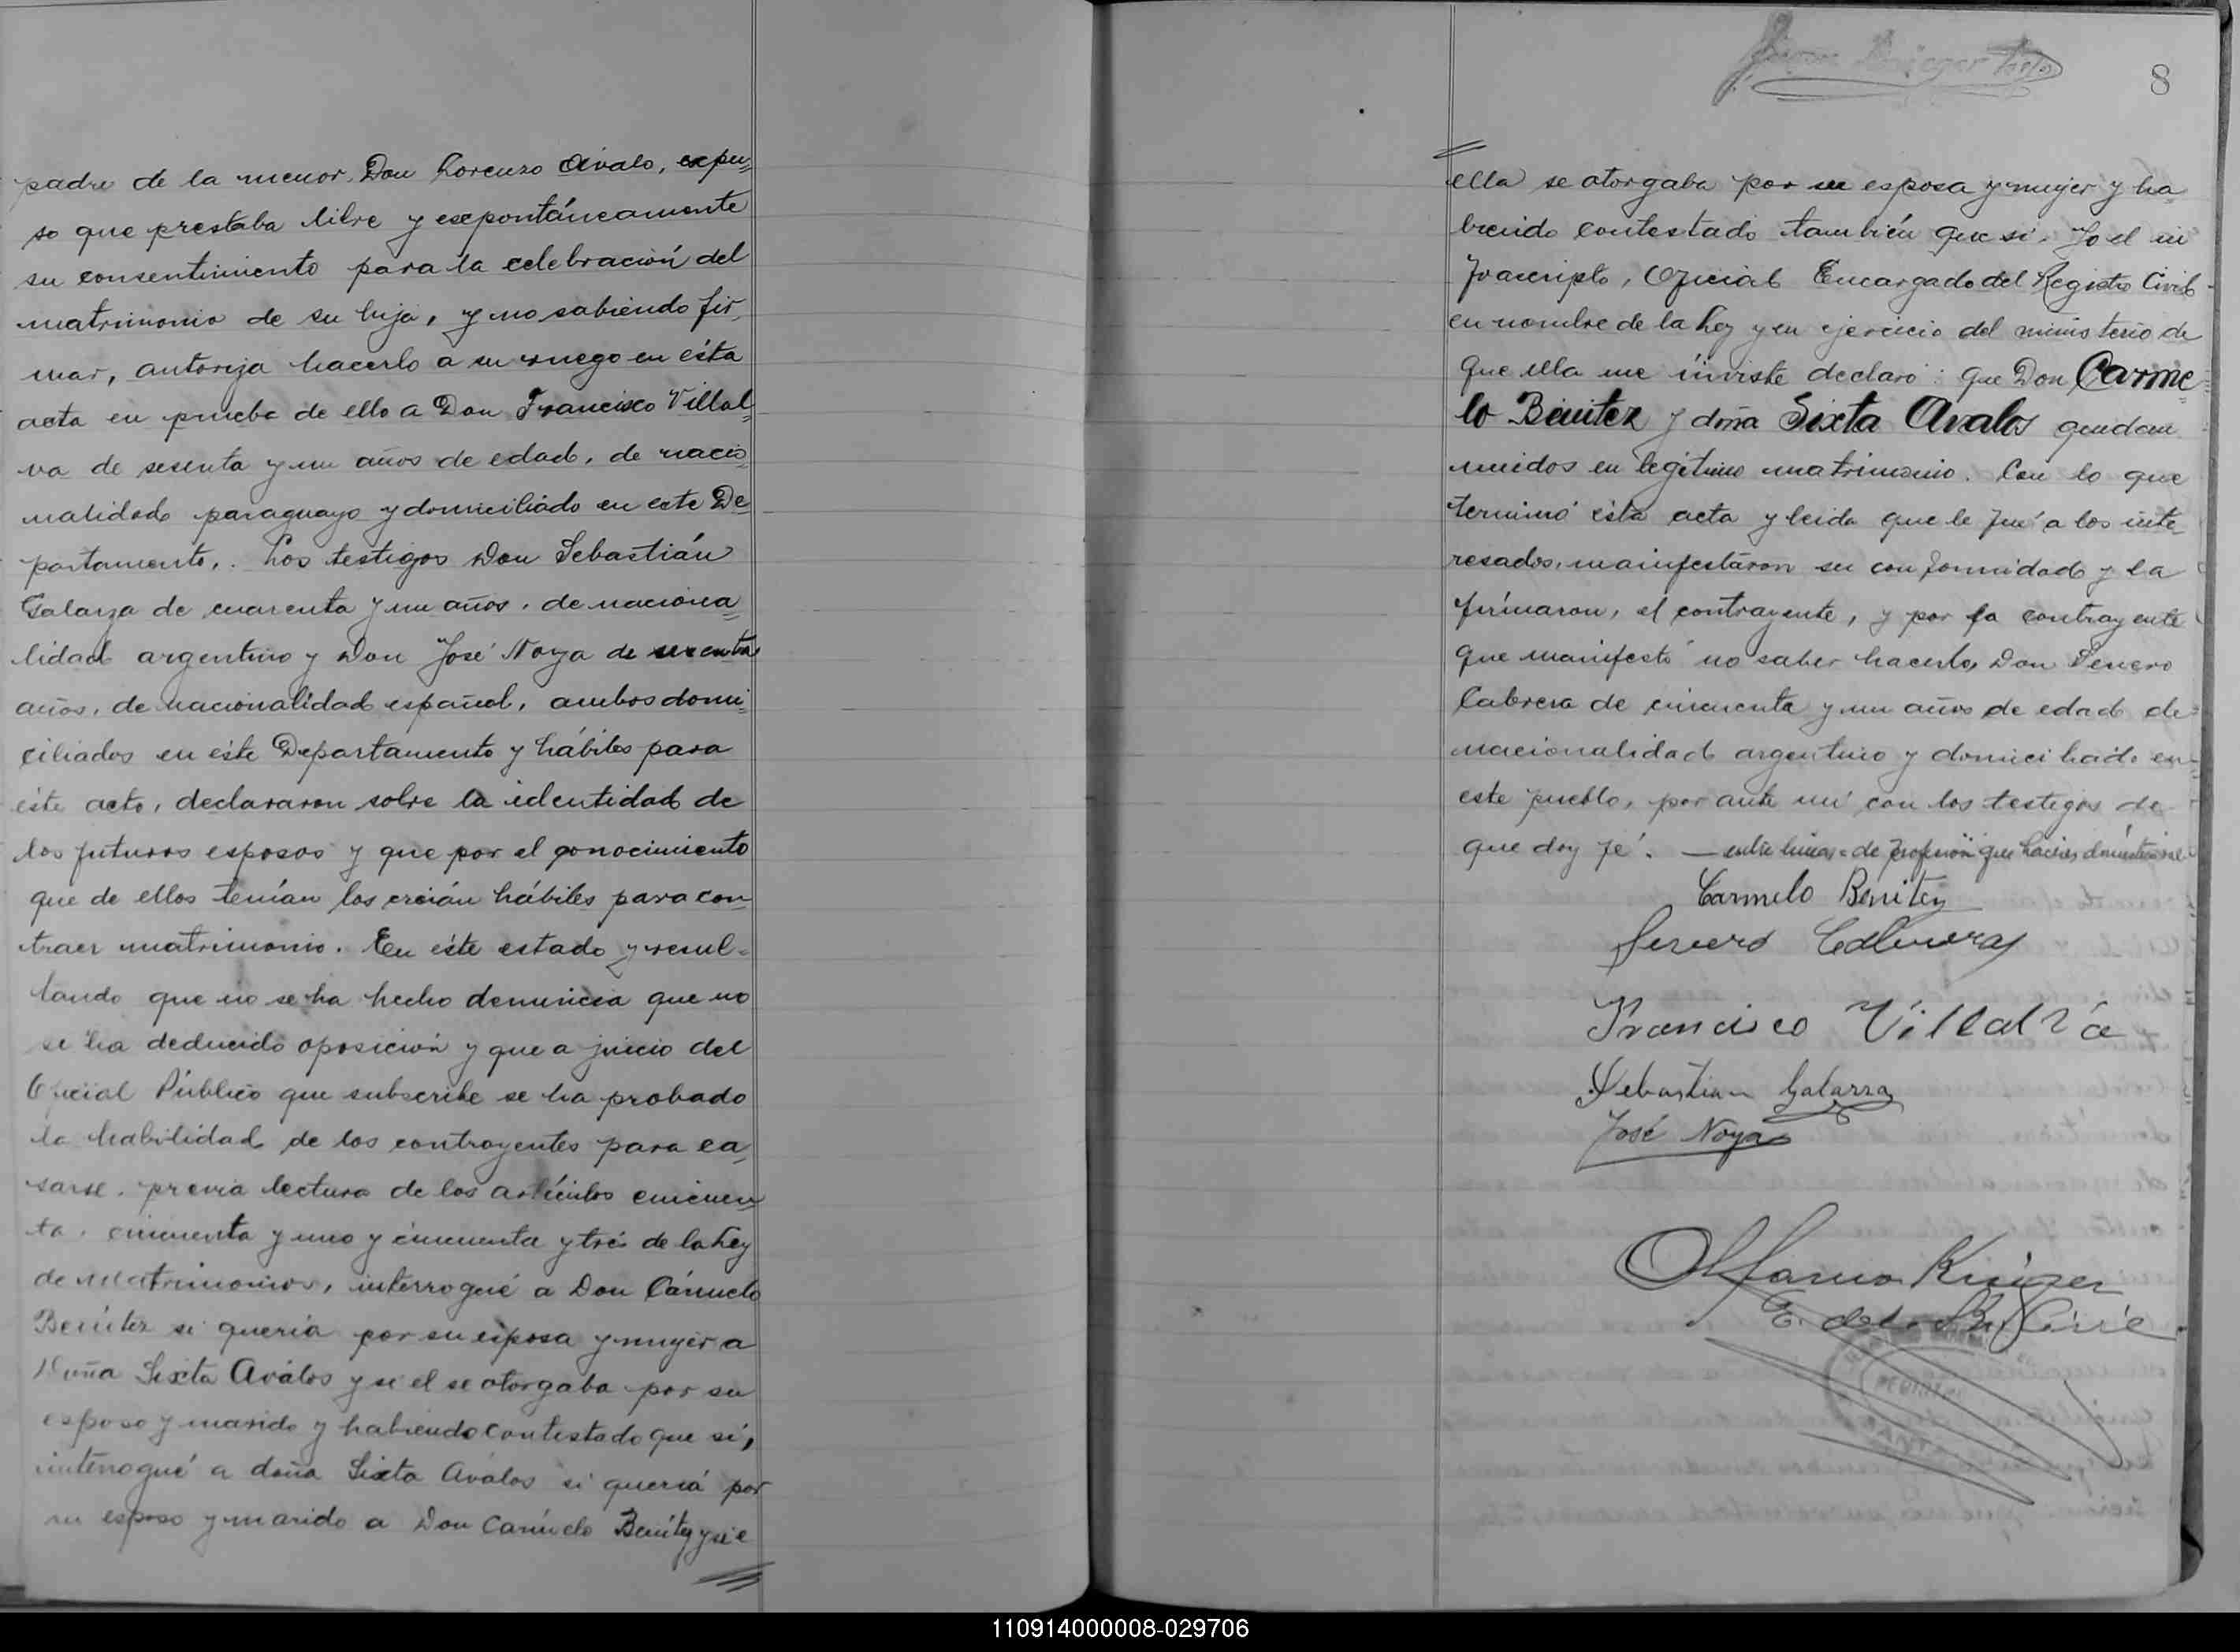 padre de la menor, Don Lorenzo Avalo, expu=
so que prestaba libre y esepontáneamente
su consentimiento para la celebración del
matrimonio de su hija, y no sabiendo fir,
mar, autoriza hacerlo a su ruego en ésta
acta en prueba de ello a Don Francisco Villal=
va de sesenta y un años de edad, de nacio=
nalidad paraguayo y domiciliado en este De=
partamento,. Los testigos Don Sebastián
Galarza de cuarenta y un años, de naciona=
lidad argentino y Don José Noya de
años, de nacionalidad español, ambos domi=
ciliados en éste Departamento y hábiles para
éste acto, declararon sobre la identidad de
los futuros esposos y que por el conocimiento
que de ellos tenían los creían hábiles para con=
traer matrimonio. En éste estado y resul=
tando que no se ha hecho denuncia que no
se ha deducido oposición y que a juicio del
Oficial Público que subscribe se ha probado
la habilidad de los contrayentes para ca,
sarse, previa lectura de los artículos cincuen=
ta, cincuenta y uno y cincuenta y trés de la Ley
de Matrimonios, interrogué a Don Cármelo
Benítez si quería por su esposa y mujer a
Doña Sixta Aválos y si el se otorgaba por su
esposo y marido y habiendo contestado que sí,
interrogué a doña Sixta Aválos si quería por
su esposo y marido a Don Carmelo Benítez y si e
8
ella se otorgaba por su esposa y mujer y ha=
biendo contestado también que sí. Yo el in
frascripto, Oficial Encargado del Registro Civil
en nombre de la Ley y en ejercicio del ministerio de
que ella me inviste declaro: que Don Carme=
lo Benitez y doña Sixta Avalos quedan
unidos en legítimo matrimonio. Con lo que
terminó ésta acta y leida que le fué a los inte
resados, manifestáron su conformidad y la
firmaron, el contrayente, y por la contrayente
que manifestó no saber hacerlo, Don Severo
Cabrera de cincuenta y un años de edad de
nacionalidad argentino y domiciliado en
este pueblo, por ante mí con los testigos de
que doy fé. — entre lineas = de profesión que haceres domésticos
Carmelo Benitez
Severo Cabrera
Francisco Villalva
Sebastian Galarza
José Noya
E. del R. Civil
110914000008-029706